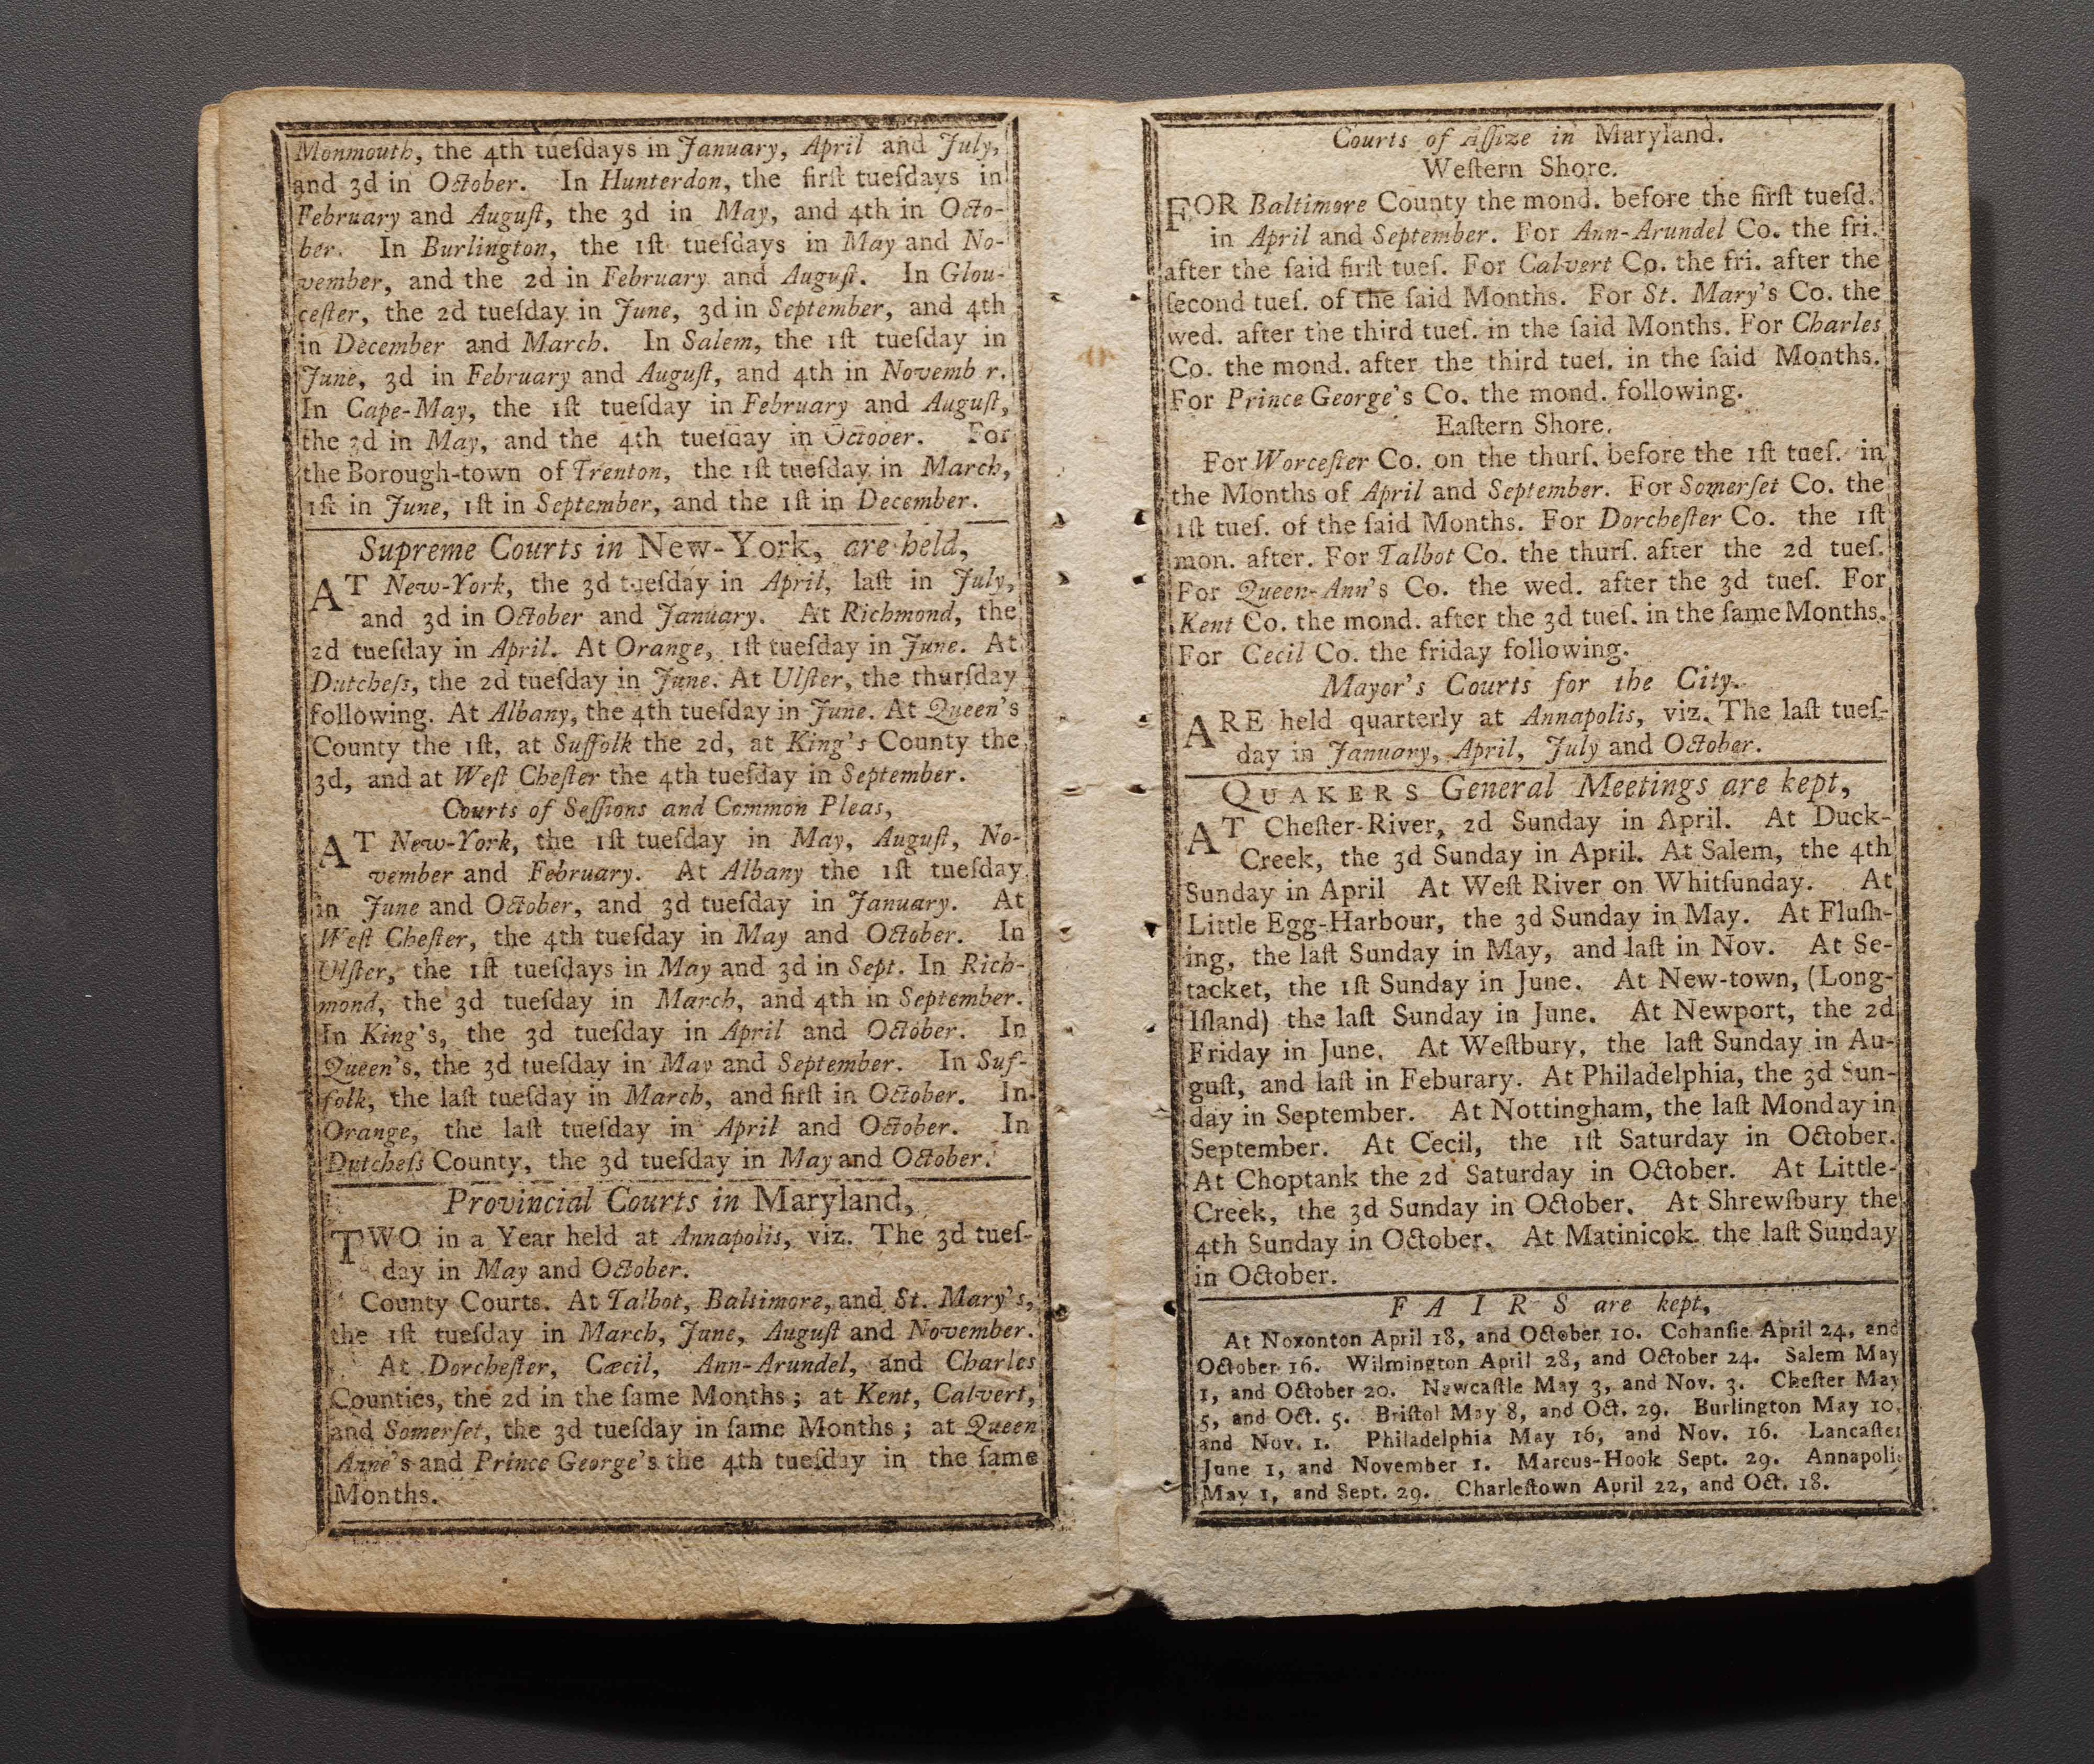 Monmouth, the 4th tueſdays in January, April and July,
and 3d in October. In Hunterdon, the firſt tueſdays in
February and Auguſt, the 3d in May, and 4th in Octo-
ber. In Burlington, the 1ſt tueſdays in May and No-
vember, and the 2d in February and Auguſt. In Glou-
ceſter, the 2d tueſday in June, 3d in September, and 4th
in December and March. In Salem, the 1ſt tueſday in
June, 3d in February and Auguſt, and 4th in Novemb r.
In Cape-May, the 1ſt tueſday in February and Auguſt,
the 3d in May, and the 4th tueſday in October. For
the Borough-town of Trenton, the 1ſt tueſday in March,
1ſt in June, 1ſt in September, and the 1ſt in December.
Supreme Courts in New-York, are held,
AT New-York, the 3d tueſday in April, laſt in July,
and 3d in October and January. At Richmond, the
2d tueſday in April. At Orange, 1ſt tueſday in June. At
Dutcheſs, the 2d tueſday in June. At Ulſter, the thurſday
following. At Albany, the 4th tueſday in June. At Queen's
County the 1ſt, at Suffolk the 2d, at King's County the
3d, and at Weſt Cheſter the 4th tueſday in September.
Courts of Seſſions and Common Pleas,
AT New-York, the 1ſt tueſday in May, Auguſt, No-
vember and February. At Albany the 1ſt tueſday
in June and October, and 3d tueſday in January. At
Weſt Cheſter, the 4th tueſday in May and October. In
Ulſter, the 1ſt tueſdays in May and 3d in Sept. In Rich-
mond, the 3d tueſday in March, and 4th in September.
In King's, the 3d tueſday in April and October. In
Queen's, the 3d tueſday in May and September. In Suf-
folk, the laſt tueſday in March, and firſt in October. In
Orange, the laſt tueſday in April and October. In
Dutcheſs County, the 3d tueſday in May and October.
Provincial Courts in Maryland,
TWO in a Year held at Annapolis, viz. The 3d tueſ-
day in May and October.
County Courts. At Talbot, Baltimore, and St. Mary's,
the 1ſt tueſday in March, June, Auguſt and November.
At Dorcheſter, Cæcil, Ann-Arundel, and Charles
Counties, the 2d in the ſame Months; at Kent, Calvert,
and Somerſet, the 3d tueſday in ſame Months; at Queen
Anne's and Prince George's the 4th tueſday in the ſame
Months.
Courts of Aſſize in Maryland.
Weſtern Shore.
FOR Baltimore County the mond. before the firſt tueſd.
in April and September. For Ann-Arundel Co. the fri.
after the ſaid firſt tueſ. For Calvert Co. the fri. after the
ſecond tueſ. of the ſaid Months. For St. Mary's Co. the
wed. after the third tueſ. in the ſaid Months. For Charles
Co. the mond. after the third tueſ. in the ſaid Months.
For Prince George's Co. the mond. following.
Eaſtern Shore.
For Worceſter Co. on the thurſ. before the 1ſt tueſ. in
the Months of April and September. For Somerſet Co. the
1ſt tueſ. of the ſaid Months. For Dorcheſter Co. the 1ſt
mon. after. For Talbot Co. the thurſ. after the 2d tueſ.
For Queen-Ann's Co. the wed. after the 3d tueſ. For
Kent Co. the mond. after the 3d tueſ. in the ſame Months.
For Cecil Co. the friday following.
Mayor's Courts for the City.
ARE held quarterly at Annapolis, viz. The laſt tueſ-
day in January, April, July and October.
QUAKERS General Meetings are kept,
AT Cheſter-River, 2d Sunday in April. At Duck-
Creek, the 3d Sunday in April. At Salem, the 4th
Sunday in April At Weſt River on Whitſunday. At
Little Egg-Harbour, the 3d Sunday in May. At Fluſh-
ing, the laſt Sunday in May, and laſt in Nov. At Se-
tacket, the 1ſt Sunday in June. At New-town, (Long-
Iſland) the laſt Sunday in June. At Newport, the 2d
Friday in June. At Weſtbury, the laſt Sunday in Au-
guſt, and laſt in Feburary. At Philadelphia, the 3d Sun-
day in September. At Nottingham, the laſt Monday in
September. At Cecil, the 1ſt Saturday in October.
At Choptank the 2d Saturday in October. At Little-
Creek, the 3d Sunday in October. At Shrewſbury the
4th Sunday in October. At Matinicok the laſt Sunday
in October.
FAIRS are kept,
At Noxonton April 18, and October 10. Cohanſie April 24, and
October 16. Wilmington April 28, and October 24. Salem May
1, and October 20. Newcaſtle May 3, and Nov. 3. Cheſter May
5, and Oct. 5. Briſtol May 8, and Oct. 29. Burlington May 10,
and Nov. 1. Philadelphia May 16, and Nov. 16. Lancaſter
June 1, and November 1. Marcus-Hook Sept. 29. Annapolis
May 1, and Sept. 29. Charleſtown April 22, and Oct. 18.